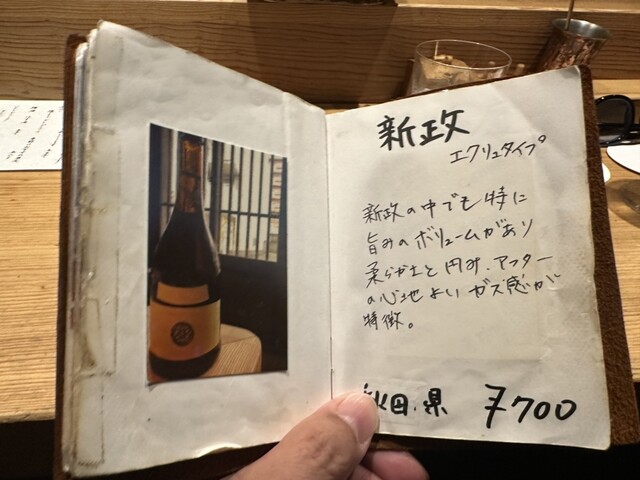 新政
エクリュタイプ
新政の中でも特に
旨みのボリュームがあり
柔らかさと円み、アフター
の心地よいガス感が
特徴。
秋田県 ¥700